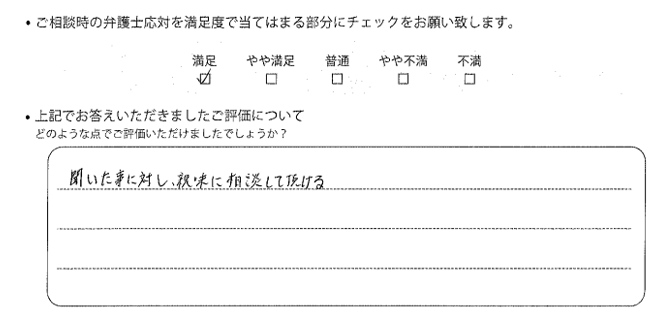 • ご相談時の弁護士応対を満足度で当てはまる部分にチェックをお願い致します。
満足 やや満足 普通 やや不満 不満
☑ □ □ □ □
• 上記でお答えいただきましたご評価について
どのような点でご評価いただけましたでしょうか？
聞いた事に対し、親味に相談して頂ける